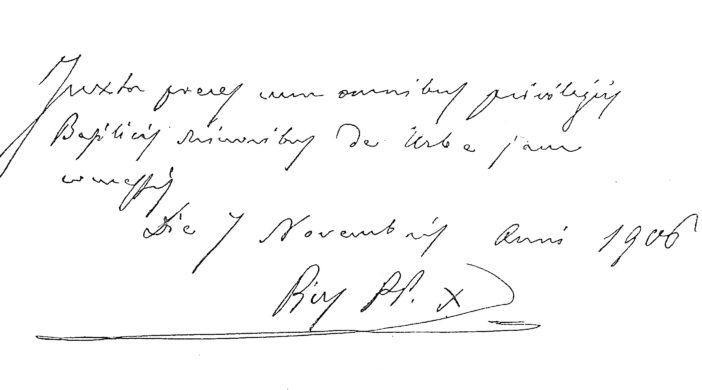 Juxta preces cum omnibus privilegiis
Basilicis minoribus de Urbe jam
concessis
Die 7 Novembris Anni 1906
Pius PP. X